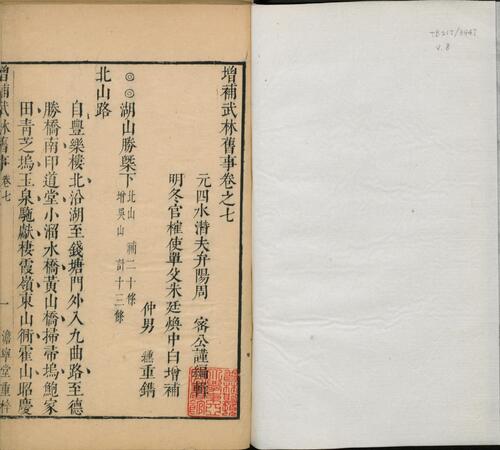 TB217/3447
v.8
增補武林舊事卷之七
元四水潛夫弁陽周 密公謹編輯
明冬官榷使單父朱廷煥中白增補
仲男 重鐫
◎◎湖山勝槩下 北山 補二十條
增吳山 計十三條
北山路
自豐樂樓北沿湖至錢塘門外入九曲路至德
勝橋南印道堂小溜水橋黃山橋掃帚塢鮑家
田青芝塢玉泉駞巘棲霞嶺東山衕霍山昭慶
增補武林舊事 卷七 一 澹寧堂重梓